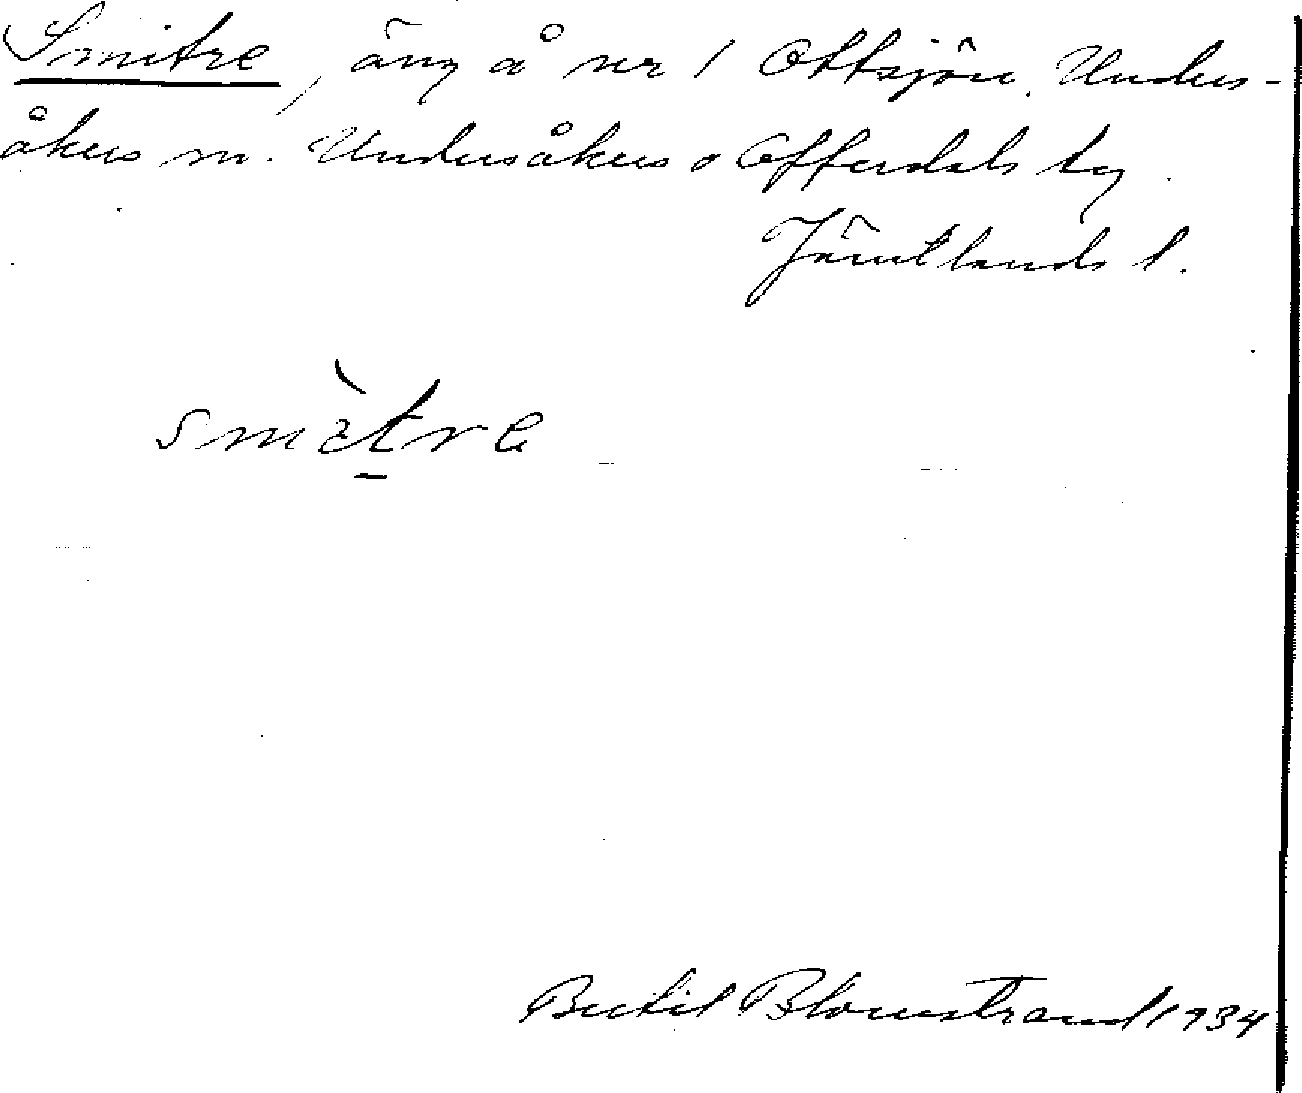 Smitre, äng å nr 1 Ottsjön, Unders-
åkers sn. Undersåkers o Offerdals tg
Jämtlands l.
smìtre
Bertil Blomstrand 1934